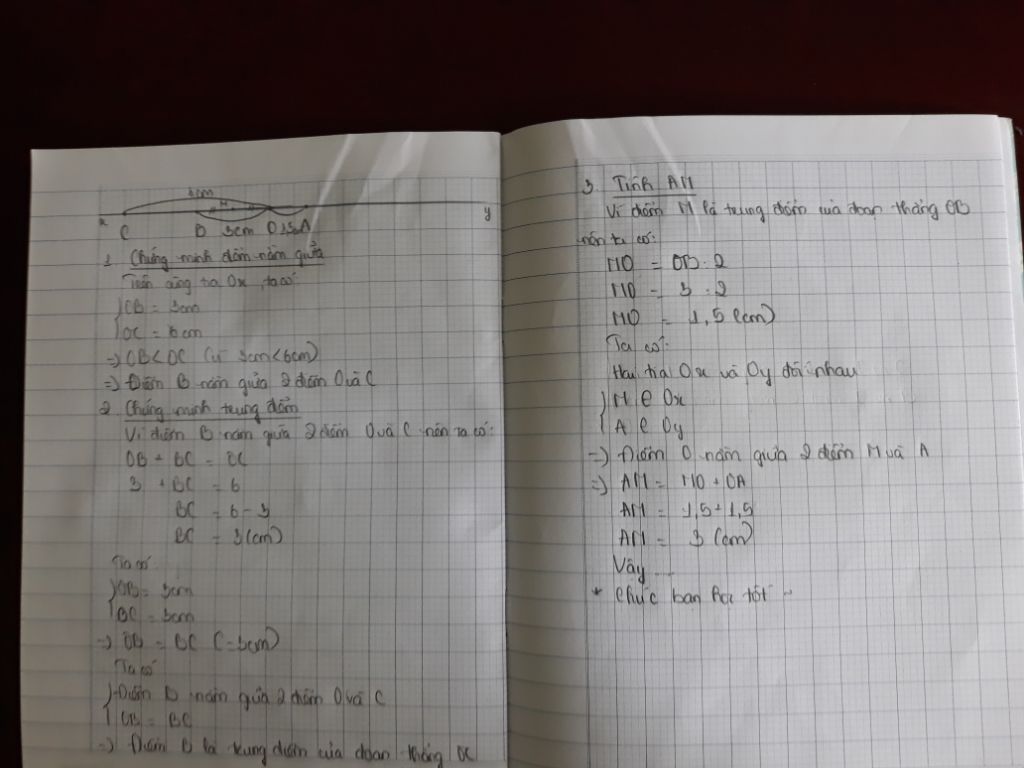 6cm
x C B M 3cm O 1,5 A y
1. Chứng minh điểm nằm giữa
Trên cùng tia Ox, ta có:
OB = 3cm
OC = 6cm
=> OB < OC (vì 3cm < 6cm)
=> Điểm B nằm giữa 2 điểm O và C
2. Chứng minh trung điểm
Vì điểm B nằm giữa 2 điểm O và C nên ta có:
OB + BC = OC
3 + BC = 6
BC = 6 - 3
BC = 3 (cm)
Ta có:
OB = 3cm
BC = 3cm
=> OB = BC (= 3cm)
Ta có
Điểm B nằm giữa 2 điểm O và C
OB = BC
=> Điểm B là trung điểm của đoạn thẳng OC
3. Tính AM
Vì điểm M là trung điểm của đoạn thẳng OB
nên ta có:
MO = OB : 2
MO = 3 : 2
MO = 1,5 (cm)
Ta có:
Hai tia Ox và Oy đối nhau
M ∈ Ox
A ∈ Oy
=> Điểm O nằm giữa 2 điểm M và A
=> AM = MO + OA
AM = 1,5 + 1,5
AM = 3 (cm)
Vậy ...
* Chúc bạn học tốt ~